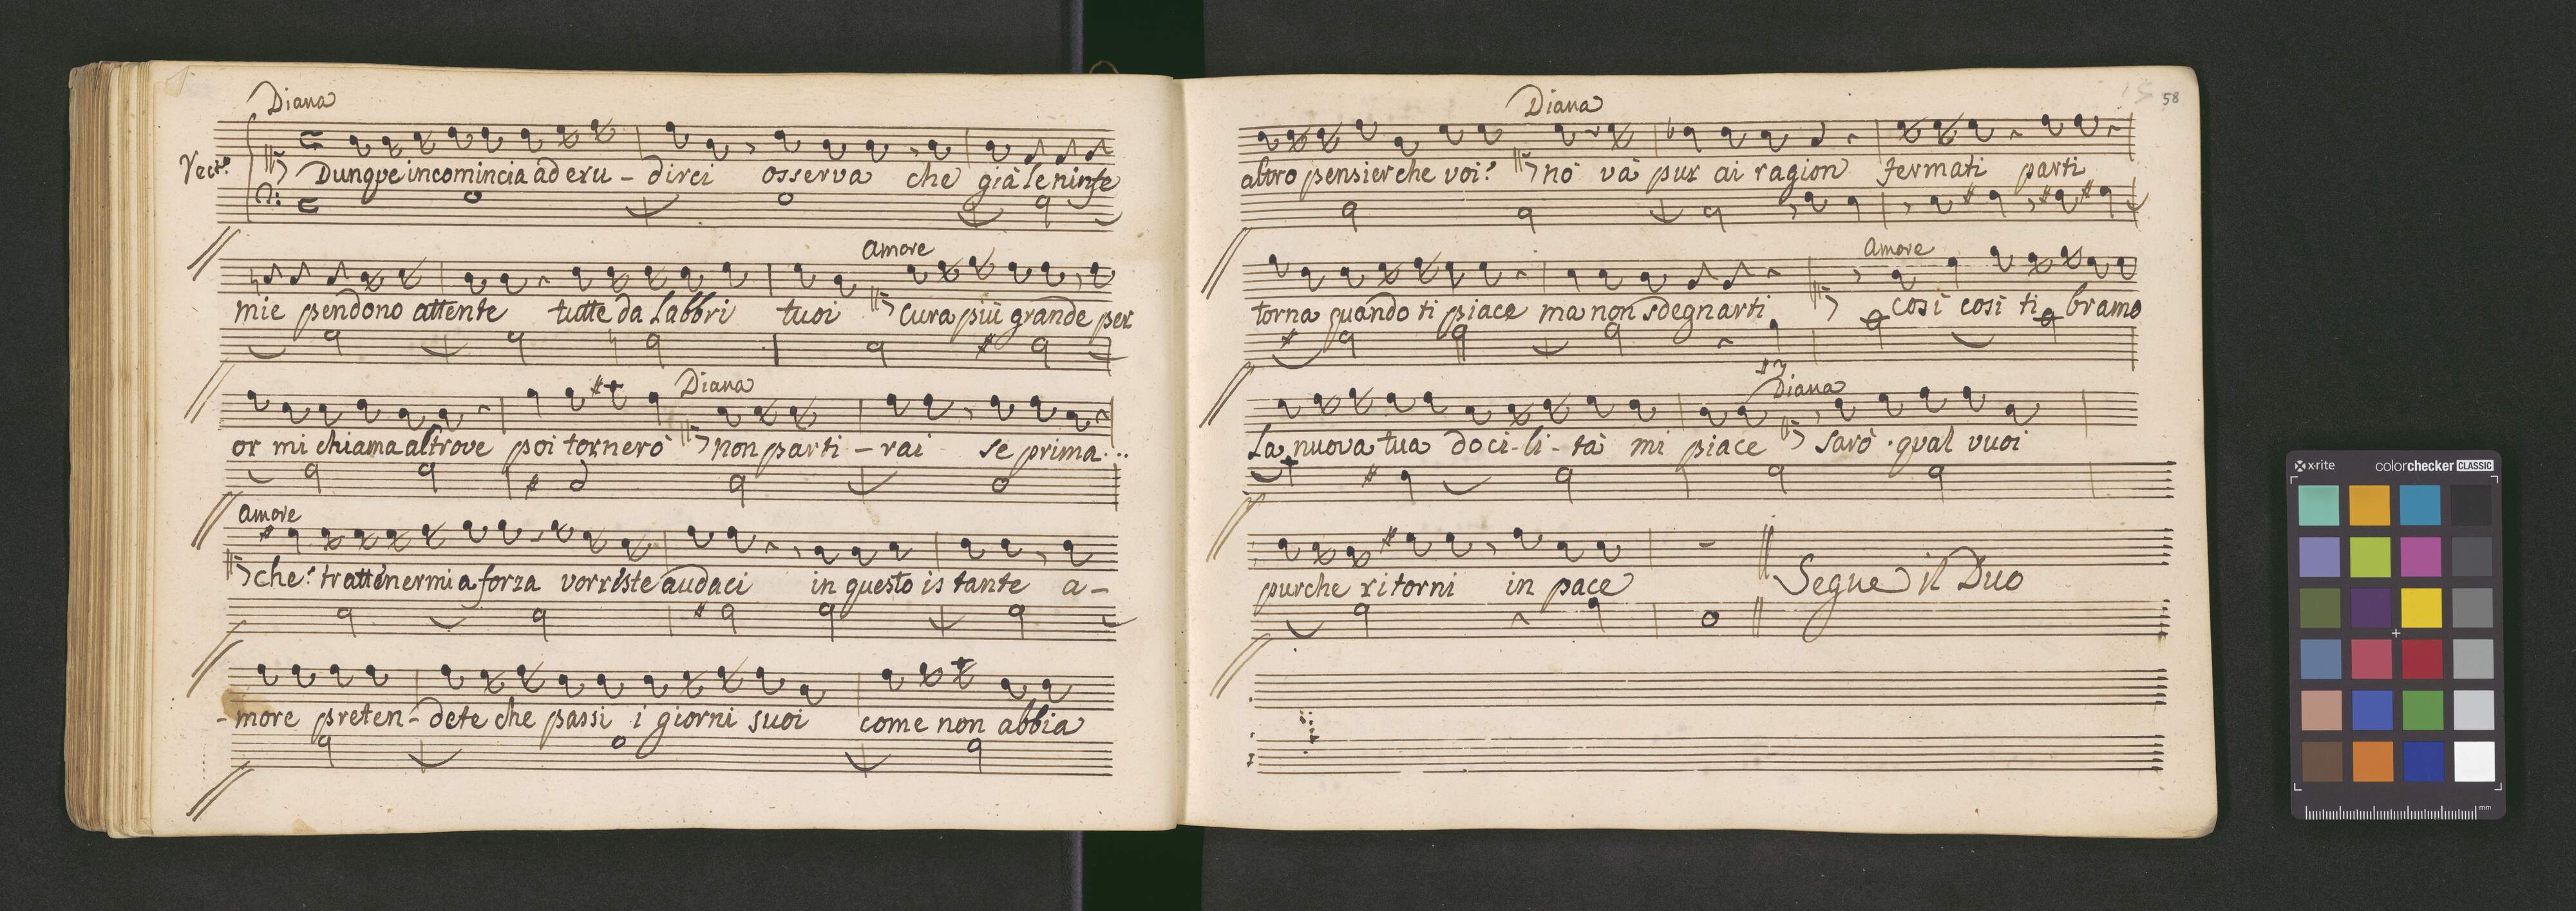 Diana
Recit.º
Dunque incomincia ad eru - dirci osserva che già le ninfe
amore
mie pendono attente tutte da labbri tuoi cura più grande per
Diana
or mi chiama altrove poi tornerò non parti - rai se prima...
amore
che? trattenermi a forza vorreste audaci in questo istante a -
- more preten - dete che passi i giorni suoi come non abbia
58
Diana
altro pensier che voi? nò và pur ai ragion fermati parti
amore
torna quando ti piace ma non sdegnarti così così ti bramo
Diana
La nuova tua doci - li - tà mi piace sarò qual vuoi
purche ritorni in pace Segue il Duo
x-rite colorchecker CLASSIC
mm